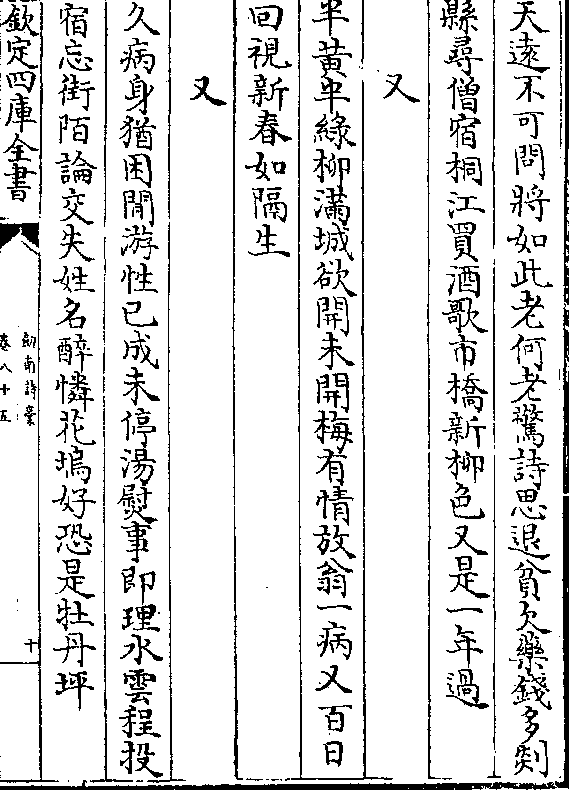 天遠不可問將如此老何老驚詩思退貧欠藥錢多剡
縣尋僧宿桐江買酒歌市橋新柳色又是一年過
又
半黄半綠柳滿城欲開未開梅有情放翁一病又百日
回視新春如隔生
又
久病身猶困閒游性已成未停湯熨事即理水雲程投
宿忘街陌論交失姓名醉憐花塢好恐是牡丹坪
欽定四庫全書
劔南詩藁
卷八十五
十